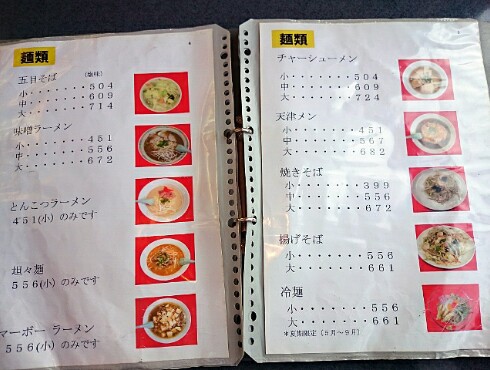 麺類
五目そば (塩味)
小・・・・・・・・504
中・・・・・・・・609
大・・・・・・・・714
味噌ラーメン
小・・・・・・・・451
中・・・・・・・・556
大・・・・・・・・672
とんこつラーメン
451(小) のみです
坦々麺
556(小) のみです
マーボー ラーメン
556(小) のみです
麺類
チャーシューメン
小・・・・・・・・504
中・・・・・・・・609
大・・・・・・・・724
天津メン
小・・・・・・・・451
中・・・・・・・・567
大・・・・・・・・682
焼きそば
小・・・・・・・・399
中・・・・・・・・556
大・・・・・・・・672
揚げそば
小・・・・・・・・556
大・・・・・・・・661
冷麺
小・・・・・・・・556
大・・・・・・・・661
*夏期限定(5月～9月)